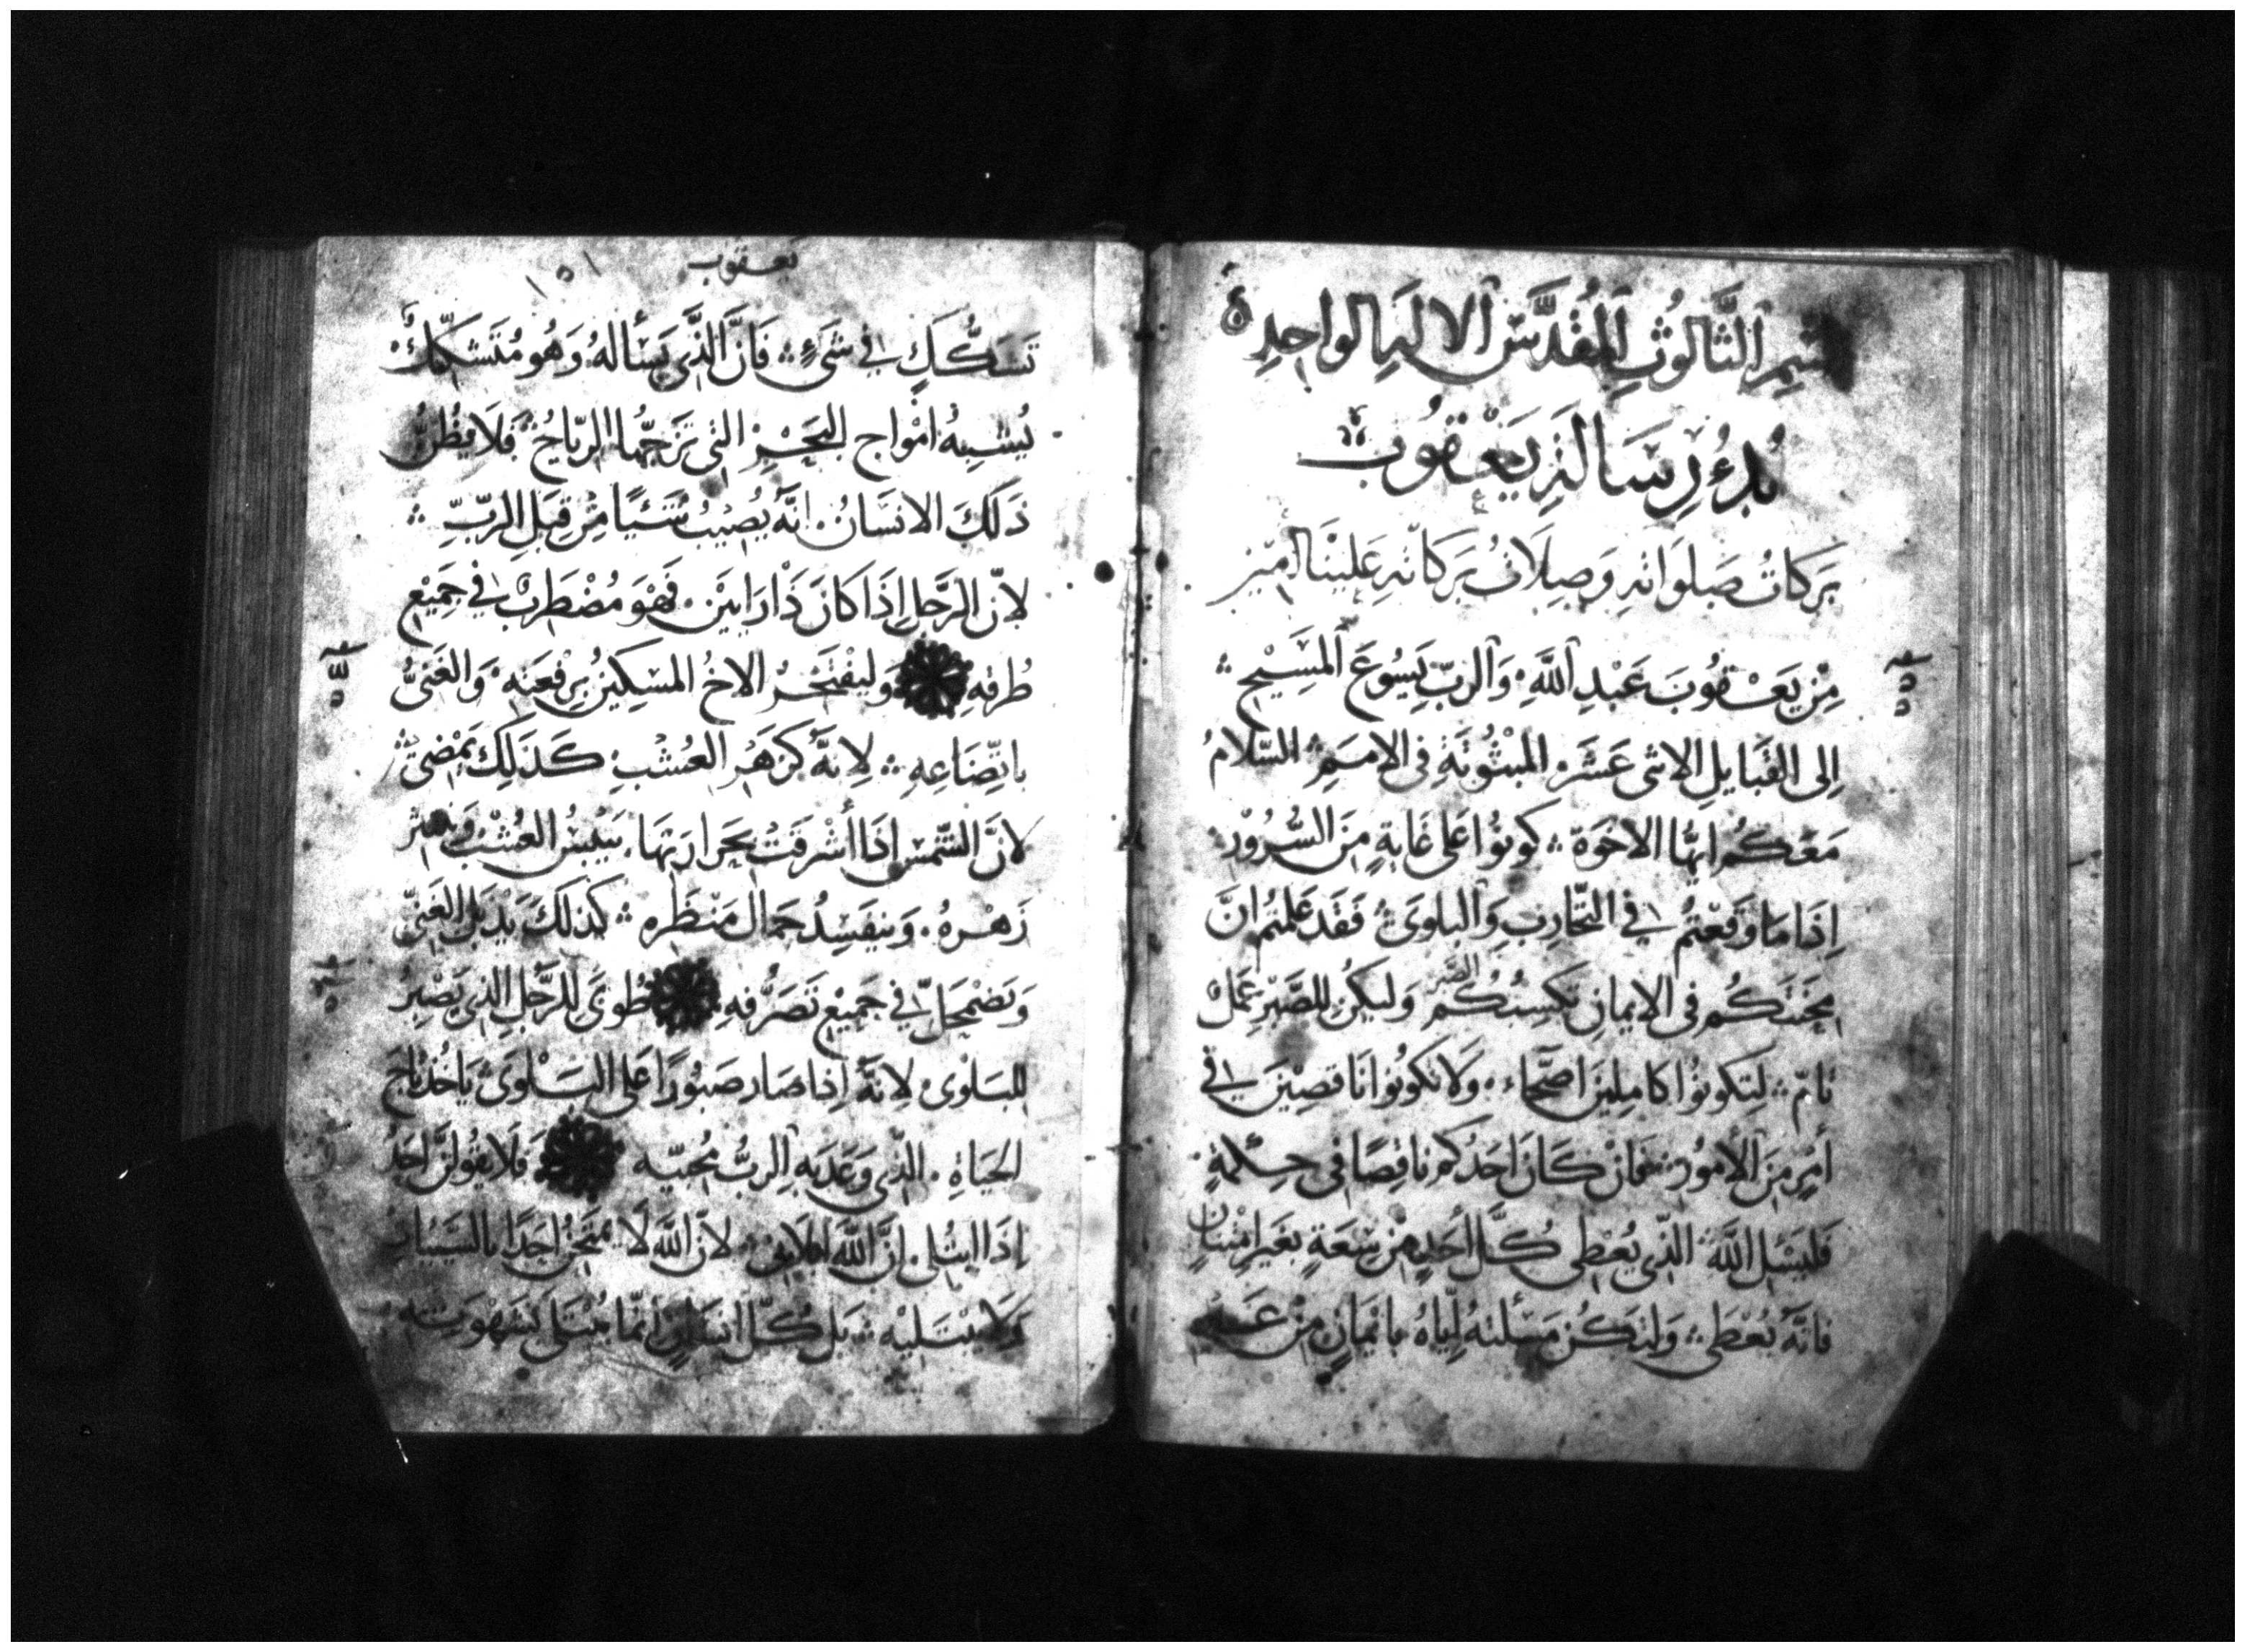 بسْمِ الثَّالُوثِ المُقَدَّسِ الالهِ الواحِدِ
بُدءُ رِسَالَةِ يَعْقُوبَ
بَرَكَاتُ صَلَوَاتهِ وَصِلَاتُ بَرَكَاتهِ عَليْنَا امين
مِنْ يَعْقُوبَ عَبْدِ اللَّهِ وَالربّ يَسُوعَ المَسِيْحِ
اِلى القَبَايلِ الاثنى عَشَرَ المبْثُوثَةِ فى الامَمِ السَّلَامُ
مَعَكُم ايُّها الاخوَة كونوُا عَلى غَايةٍ مِنَ السُّرُوْرِ
اِذَا مَا وَقَعْتمُ فِي التَّجَارِبِ وَالبلوىَ فَقَد عَلمتُم انَّ
مِحْنَتَكُم فى الايمانِ تكسِبُكُم الصَّبر وَليَكُنِ للصَّبْرِ عَمَلٌ
تامّ لِتَكونوُا كامِلِينَ اصحَّاء وَلَا تَكوُنوُا نَاقصِيْنَ فِي
أمْرٍ مِنَ الأمُورِ فانْ كَانَ احَدُكم ناقِصًا فى حِكمةٍ
فَليَسْئلِ اللَّهَ الذّى يُعْطى كُلَّ أحَدٍ مِنْ سَعَةٍ بغَيرِ امْتنَانٍ
فانَّهُ يُعْطَى وَلتَكُنْ مَسْئلتهُ اِيَّاهُ بايْمَانٍ مِنْ غَيرِ
يعقوب
١٥١
تَشَكُّكٍ فِي شَىْءٍ فَانَّ الذَّى يَسْألهُ وَهُو مُتَشَكِّكٌ
يُشبِهُ امْواج البَحْرِ التى تزَجّهَا الرّيَاحُ فَلَا يَظُنُّ
ذَلَكَ الانسَانُ انَّهُ يُصِيْبُ شَيْئًا مِنْ قِبَلِ الربّ
لانّ الرَّجلِ اِذَا كَانَ ذَا رَايَيْنِ فَهْوَ مُضْطَرِبٌ فِي جَمِيْعِ
طُرقهِ وَليفْتَخْرُ الاخُ المسْكِينُ برِفْعَتِهِ وَالغَنىُّ
باتِّضَاعِهِ لاِنَّهُ كَزَهْرِ العُشْبِ كَذلِكَ يمْضى
لانَّ الشَّمسَ اِذَا أشْرقَتْ بحَرارتهَا يَيْبسُ العُشْبُ وَينتثرُ
زَهْرهُ وَيَفسِدُ جمَالَ مَنْظَرِه كذلكَ يَذبلُ الغَنىُّ
وَيَضْمَحِلّ فِي جَميْعِ تَصَرُّفهِ طُوبَى للرَّجلِ الذى يَصْبرُ
للبلوَى لاِنَّهُ اِذا صَار صَبُورًا عَلى البَلْوىَ يَاخُذ تاج
الحيَاةِ الذّى وَعَدَ بهِ الربُّ مُحبيّه فَلَا يقُولنَّ احَدٌ
اِذَا ابتُلى انَّ اللَّهَ ابتلانى لانّ اللَّهَ لَا يمْتَحِنُ احَدًا بالسَّيئاتِ
وَلَا يَبْتَليْهِ بَل كُلّ انسَانٍ انّمَا يُبْتلَى بشَهْوتِهِ